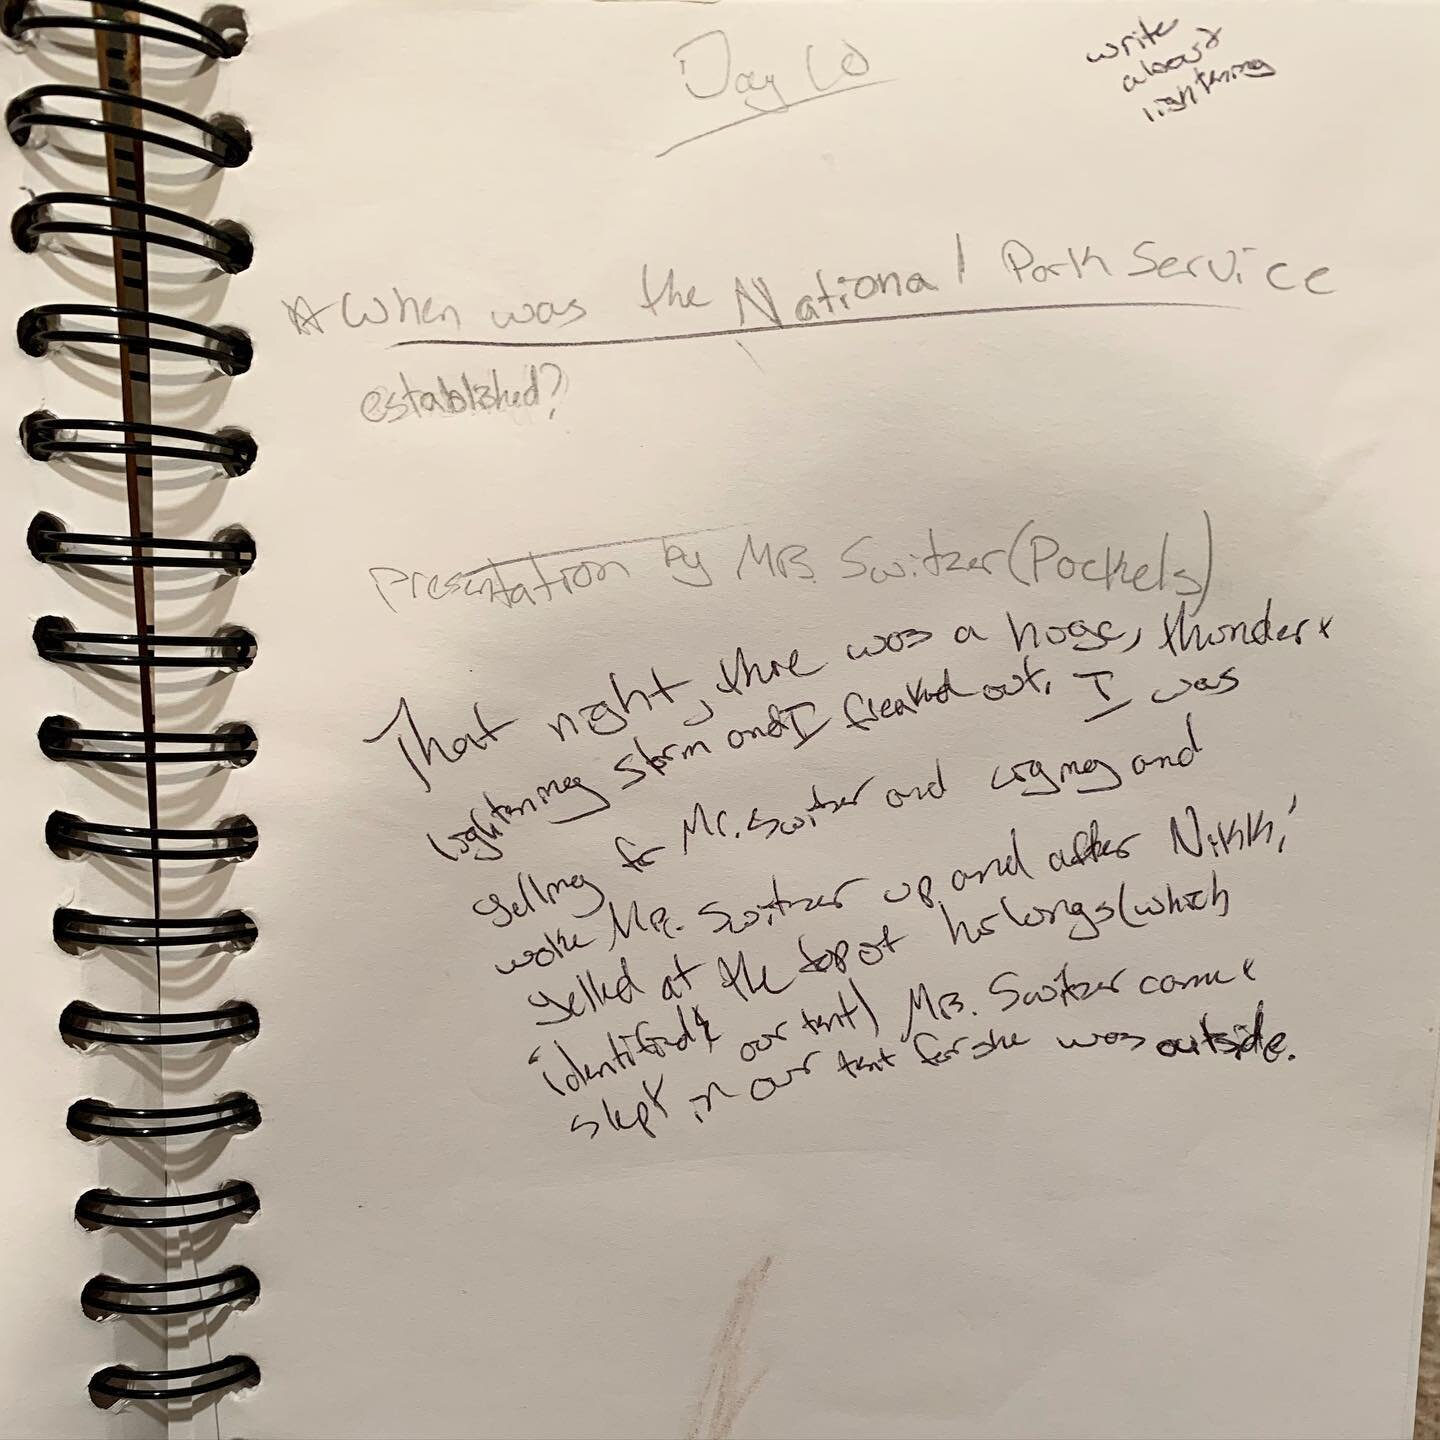 Day 10
write
about
lightening
☆ When was the National Park Service
established?
Presentation by MRS. Switzer (Pockets)
That night, there was a huge, thunder +
lightening storm and I freaked out. I was
yelling for Mr. Switzer and crying and
woke MR. Switzer up and after Nikki,
yelled at the top of her lungs (which
identified our tent) MRS. Switzer came +
slept in our tent for she was outside.